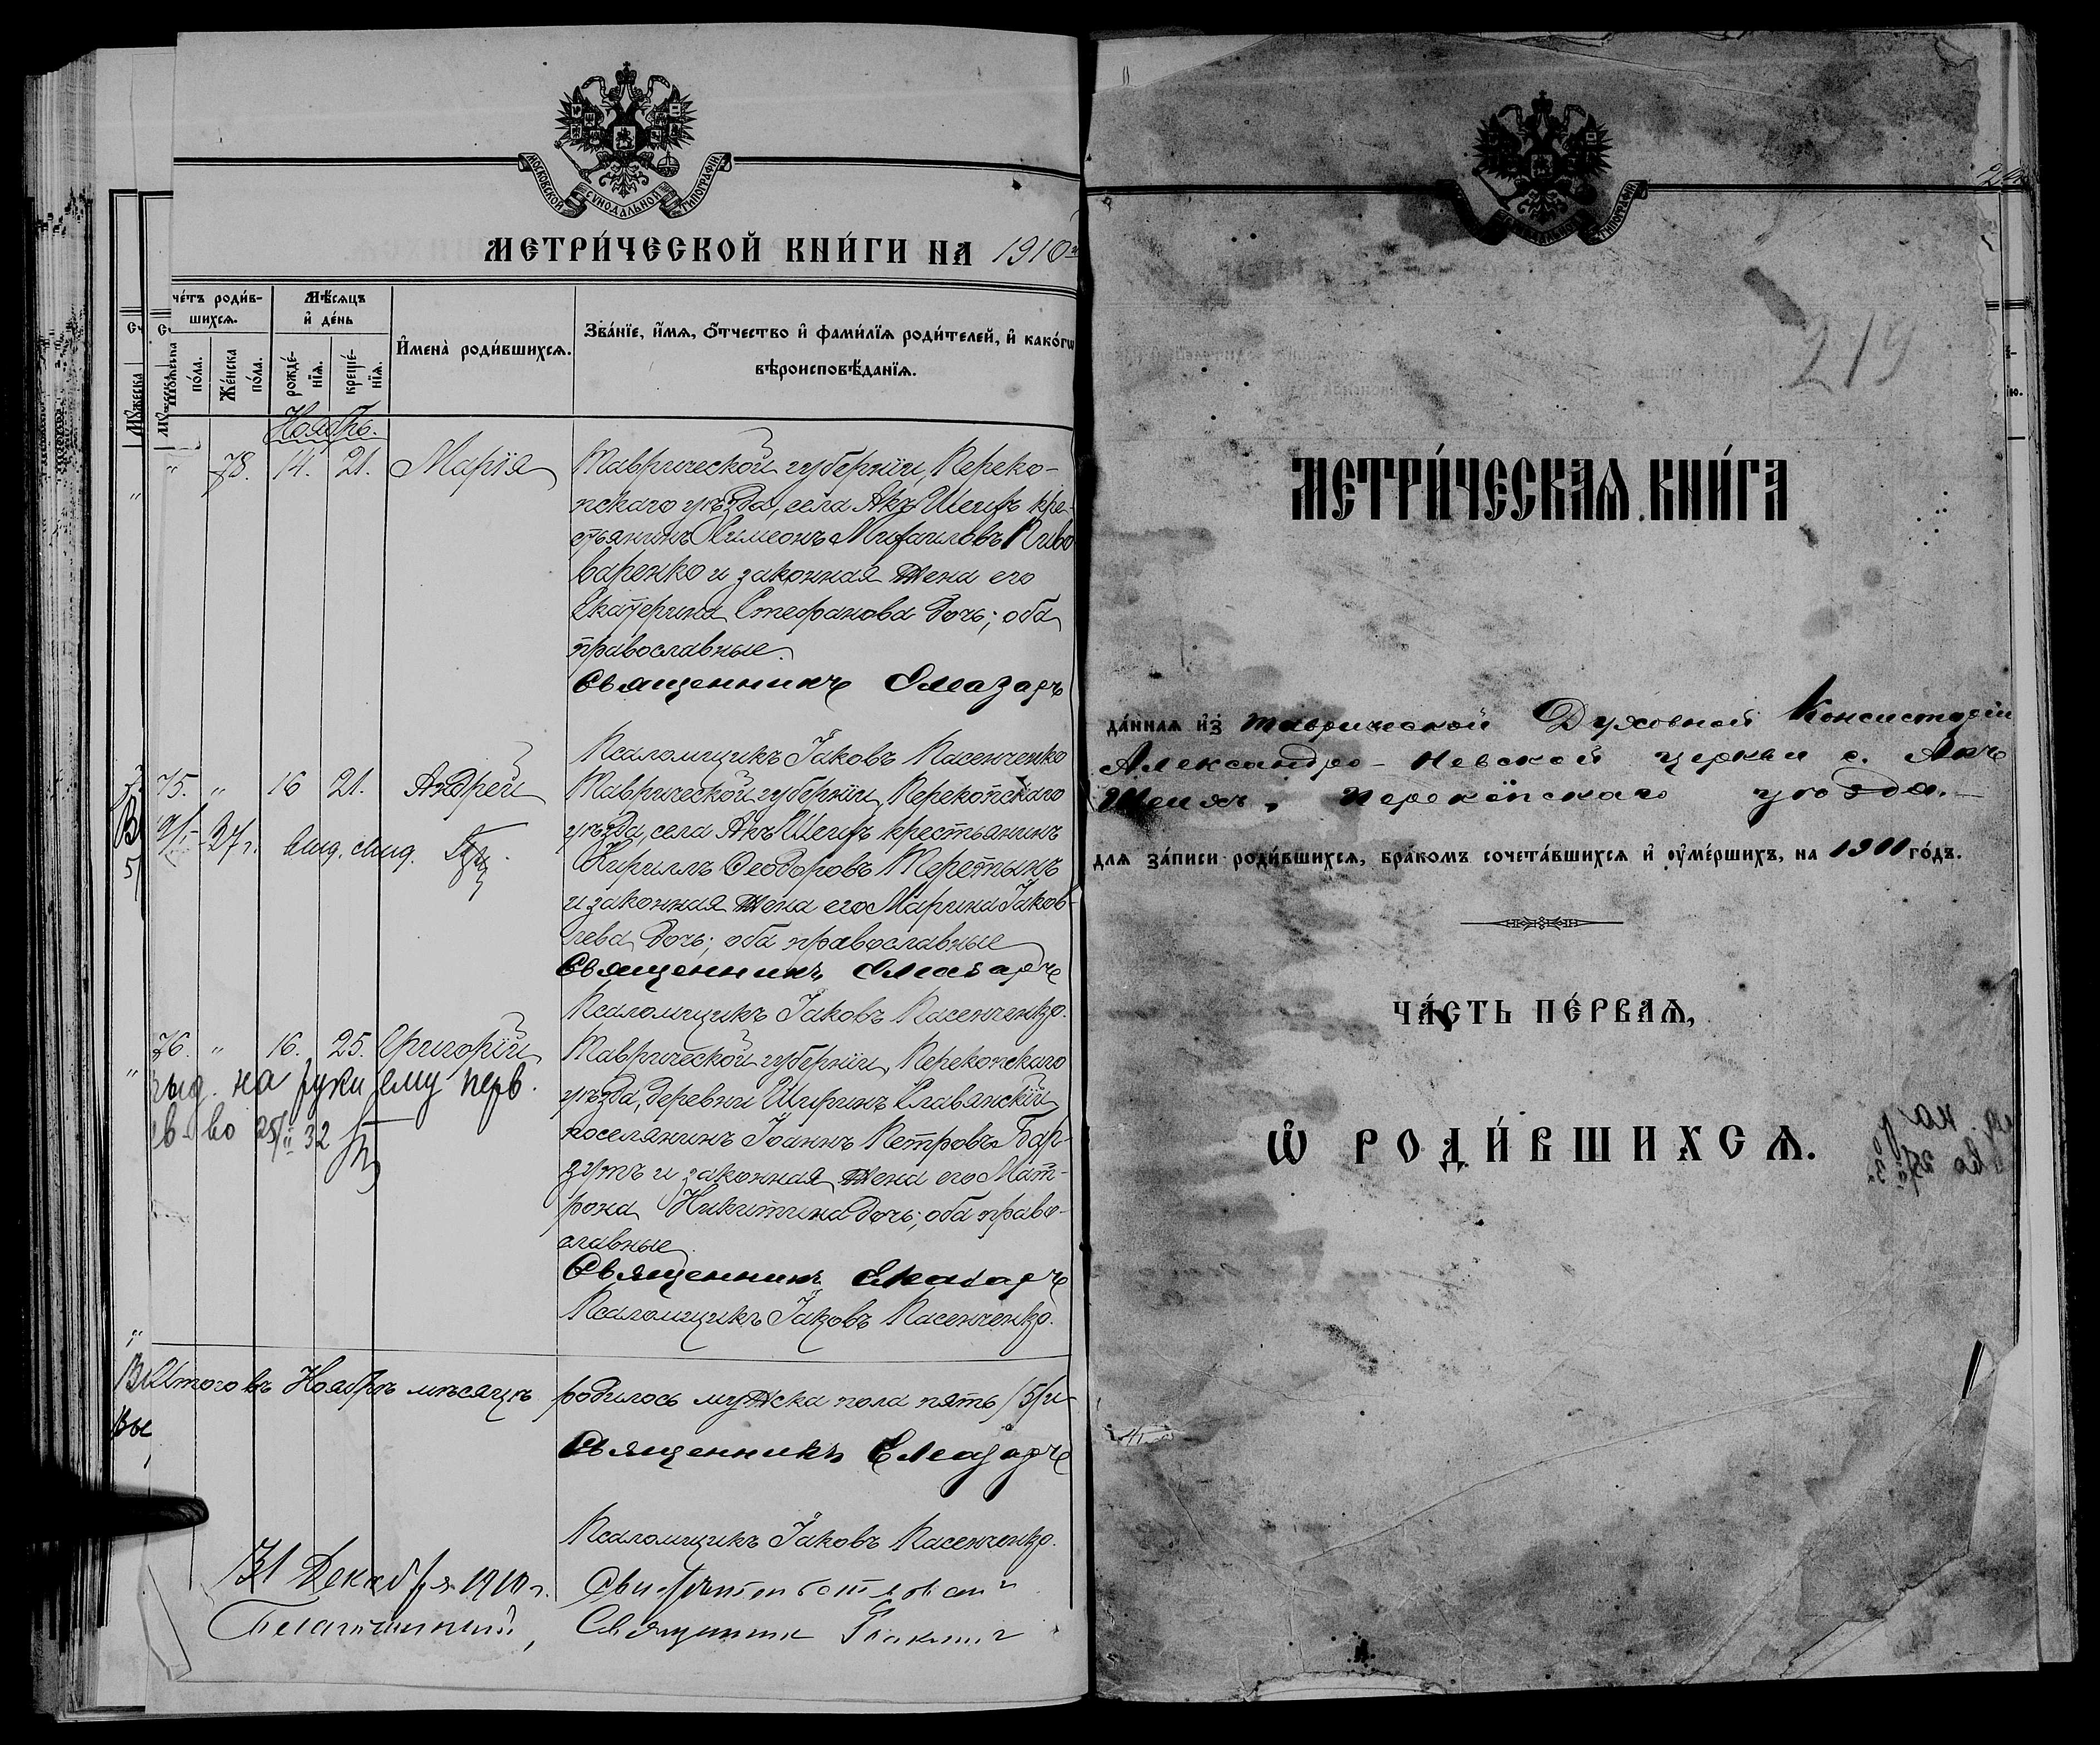 МОСКОВСКОЙ СѴНОДАЛЬНОЙ ТИПОГРАФІИ
МЕТРИ́ЧЕСКОЙ КНИ́ГИ НА 1910
че́тъ роди́вшихсѧ.
Мѣ́сѧцъ и҆ де́нь
И҆мена̀ роди́вшихсѧ.
Зва́нїе, и҆́мѧ, ѻ҆́тчество и҆ фами́лїѧ роди́телей, и҆ како́гѡ
вѣроисповѣ́данїѧ.
по́ла.
Же́нска по́ла.
рожде́нїѧ.
креще́нїѧ.
Ноябрь.
" 78. 14. 21. Марія
Таврической губерніи, Переко-
пскаго уѣзда, села Акъ Шеихъ кре-
стьянинъ Симеонъ Михаиловъ Пиво
варенко и законная жена его
Екатерина Стефанова дочь; оба
православные.
Священникъ
Псаломщикъ Іаковъ Пасенченко
75. " 16 21. Андрей
Таврической губерніи, Перекопскаго
уѣзда, села Акъ Шеихъ крестьянинъ
Кириллъ Ѳеодоровъ
и законная жена его Марина Іаков-
лева дочь; оба православные
Священникъ
Псаломщикъ Іаковъ Пасенченко.
37 г. выд.
76. " 16. 25. Григорій
Таврической губерніи, Перекопскаго
уѣзда, деревни Ширинъ Славянскій
поселянинъ Іоаннъ Петровъ Бар-
и законная жена его Мат-
рона Никитина дочь; оба право-
славные
Священникъ
Псаломщикъ Іаковъ Пасенченко.
выд. на руки ему перв.
св-во 25/II 32
Итого въ Ноябрѣ мѣсяцѣ родилось мужска пола пять /5/ и
Священникъ
Псаломщикъ Іаковъ Пасенченко.
31 Декабря 1910 г.
Благочинный, Священникъ
МОСКОВСКОЙ СѴНОДАЛЬНОЙ ТИПОГРАФІИ
219
МЕТРИ́ЧЕСКАѦ КНИ́ГА
да́ннаѧ и҆з̾ Таврической Духовной Консисторіи
Александро-Невской церкви с. Акъ
Шеихъ, Перекопскаго уѣзда.
для за́писи роди́вшихсѧ, бра́комъ сочета́вшихсѧ и҆ ᲂу҆ме́ршихъ, на 1911 го́дъ.
ЧА́СТЬ ПЕ́РВАѦ,
Ѡ҆ РОДИ́ВШИХСѦ.